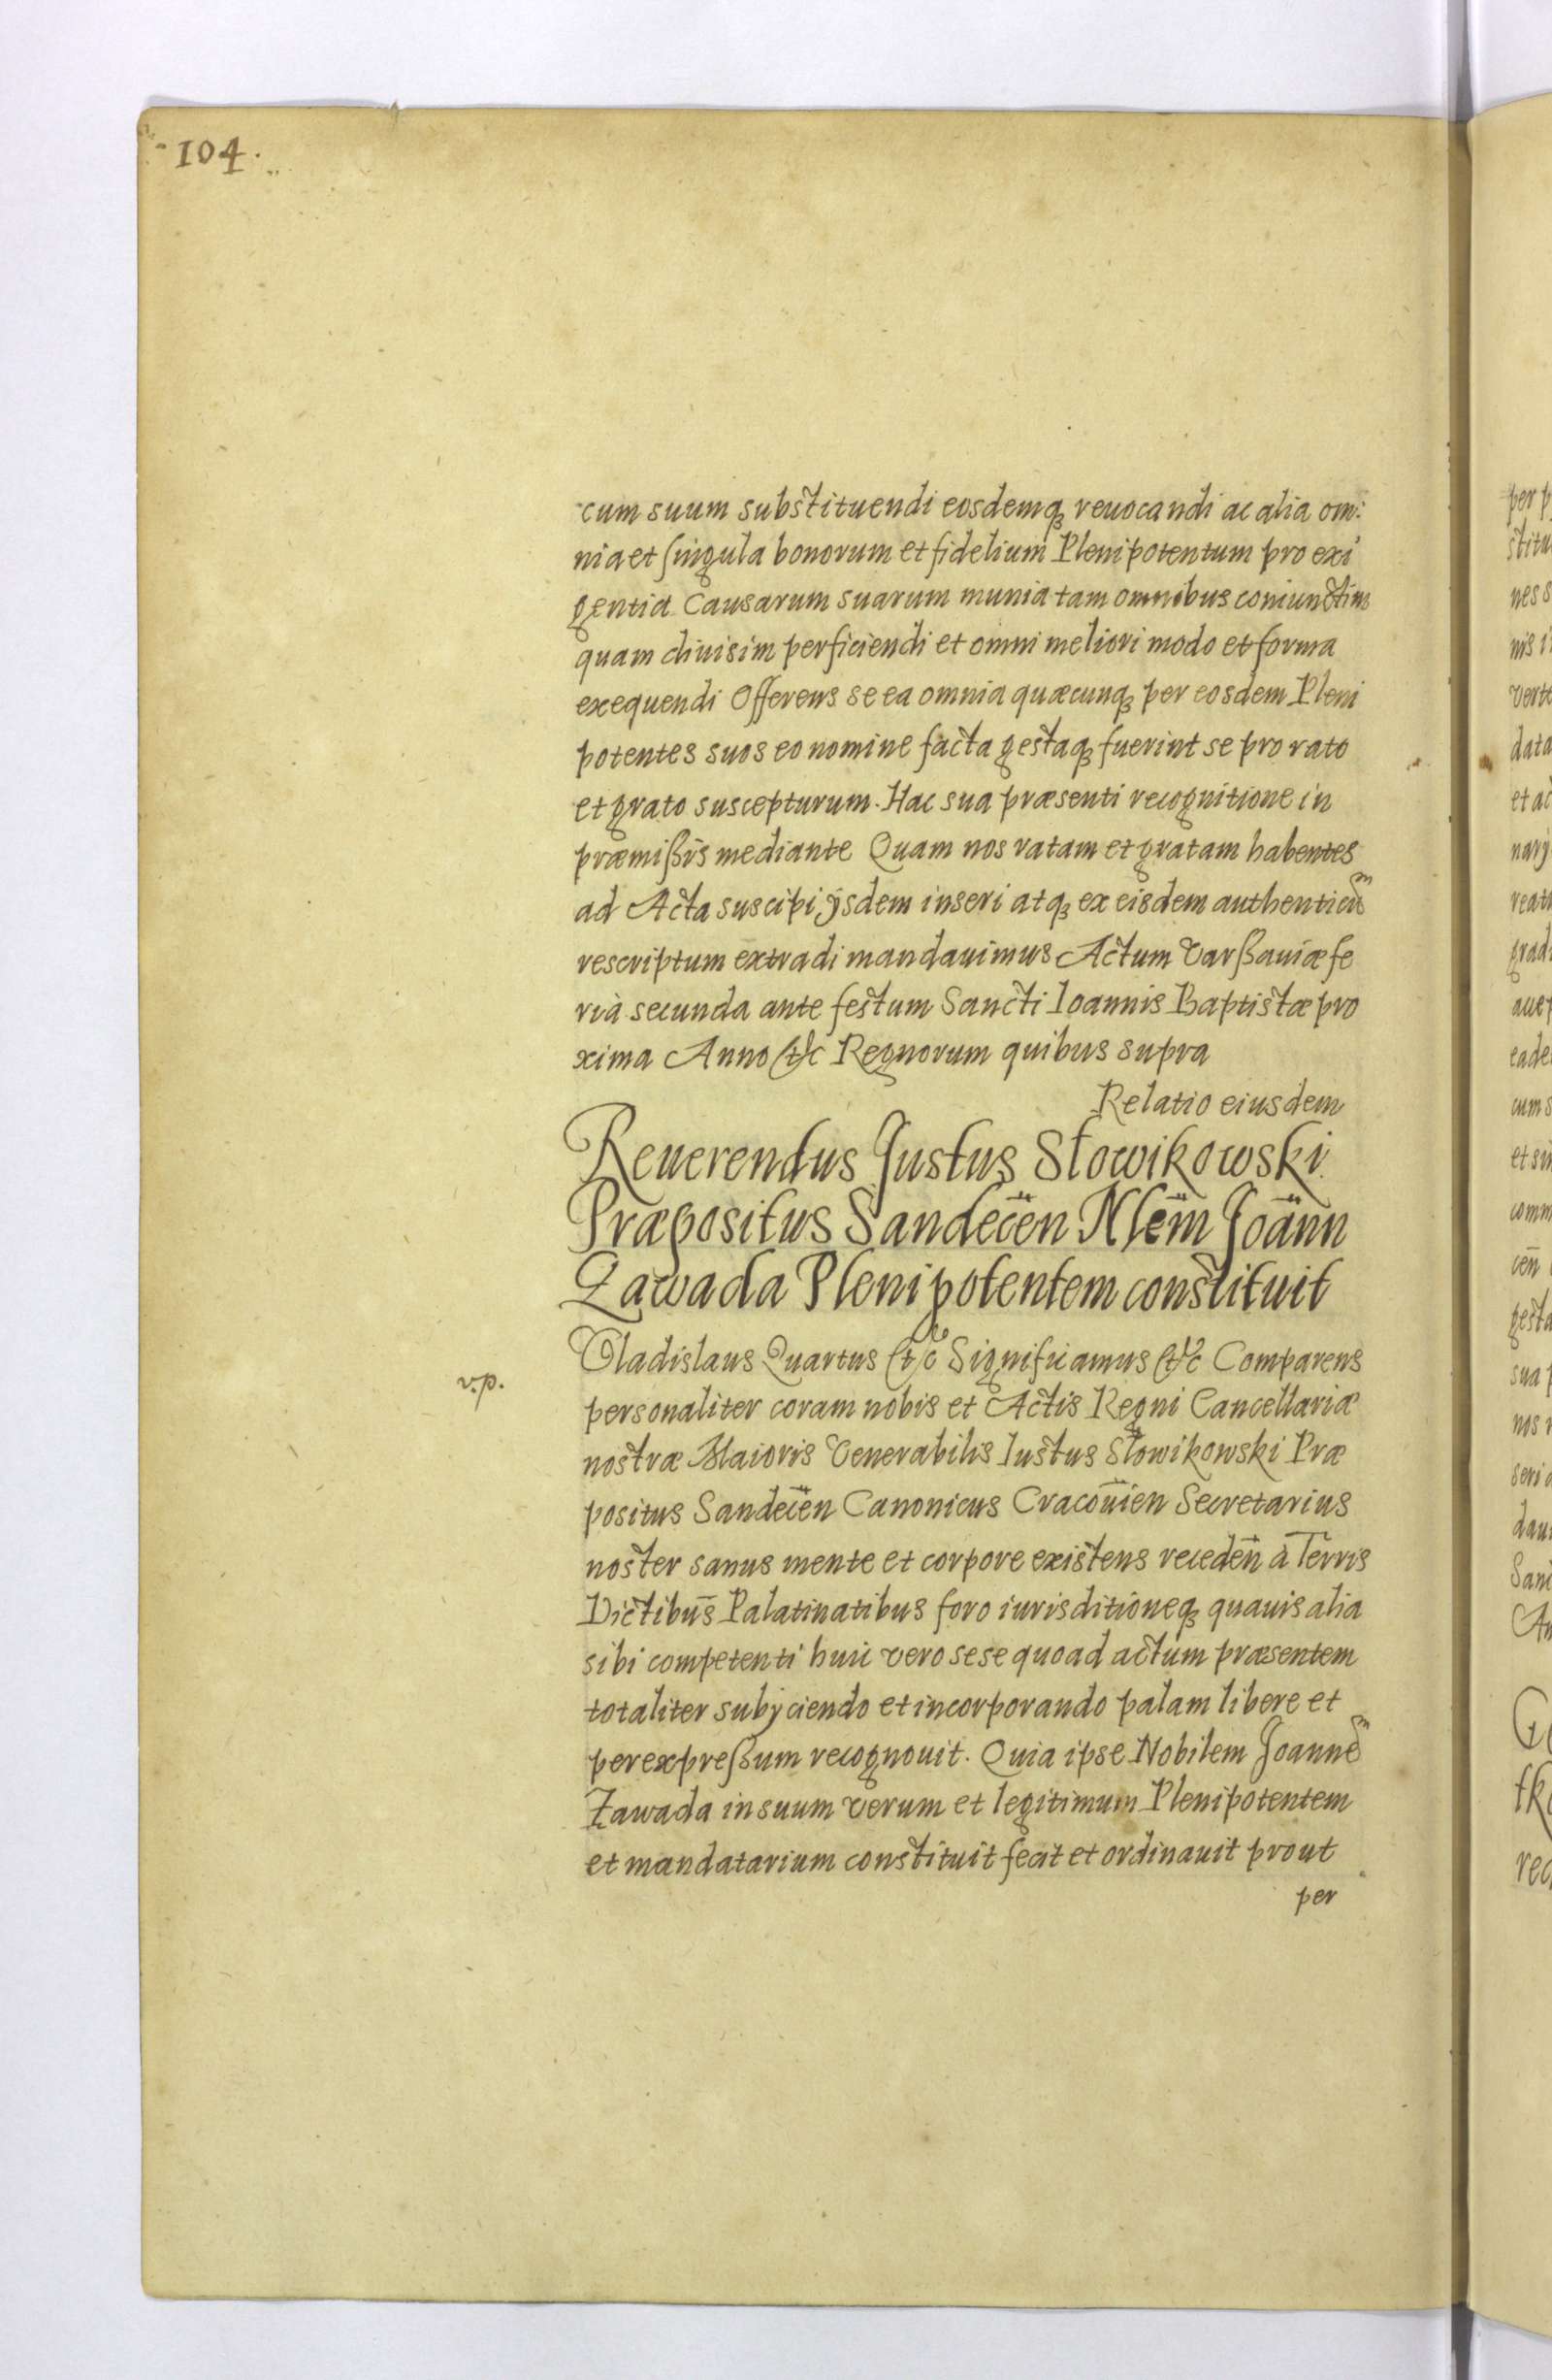 104.
cum suum substituendi eosdemq₃ reuocandi ac alia om:
nia et singula bonorum et fidelium Plenipotentum pro exi
gentia Causarum suarum munia tam omnibus coniunctim
quam diuisim perficiendi et omni meliori modo et forma
exequendi Offerens se ea omnia quæcunq₃ per eosdem Pleni
potentes suos eo nomine facta gestaq₃ fuerint se pro rato
et grato suscepturum. Hac sua præsenti recognitione in
præmißis mediante Quam nos ratam et gratam habentes
ad Acta suscipi ijsdem inseri atq₃ ex eisdem authenticũ
rescriptum extradi mandauimus Actum Varßauiæ fe
rià secunda ante festum Sancti Ioannis Baptistæ pro
xima Anno &c Regnorum quibus supra
Relatio eiusdem
Reuerendus Justus Słowikowski
Præpositus Sandecen̄ Nlem̄ Joan̄n
Zawada Plenipotentem constituit
Vladislaus Quartus &c Significamus &c Comparens
v.p.
personaliter coram nobis et Actis Regni Cancellariæ
nostræ Maioris Venerabilis Iustus Słowikowski Præ
positus Sandecen̄ Canonicus Cracouien̄ Secretarius
noster sanus mente et corpore existens receden̄ à Terris
Dictibus̄ Palatinatibus foro iurisditioneq₃ quauis alia
sibi competenti huic vero sese quoad actum præsentem
totaliter subijciendo et incorporando palam libere et
per expreßum recognouit. Quia ipse Nobilem Joannẽ
Zawada in suum verum et legitimum Plenipotentem
et mandatarium constituit fecit et ordinauit prout
per